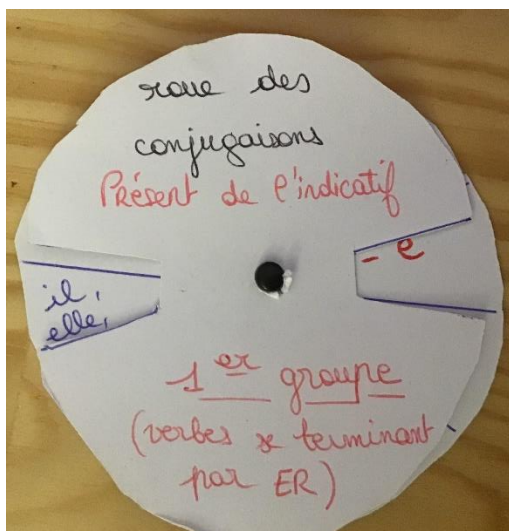 roue des
conjugaisons
Présent de l'indicatif
- e
il,
elle,
1er groupe
(verbes se terminant
par ER)